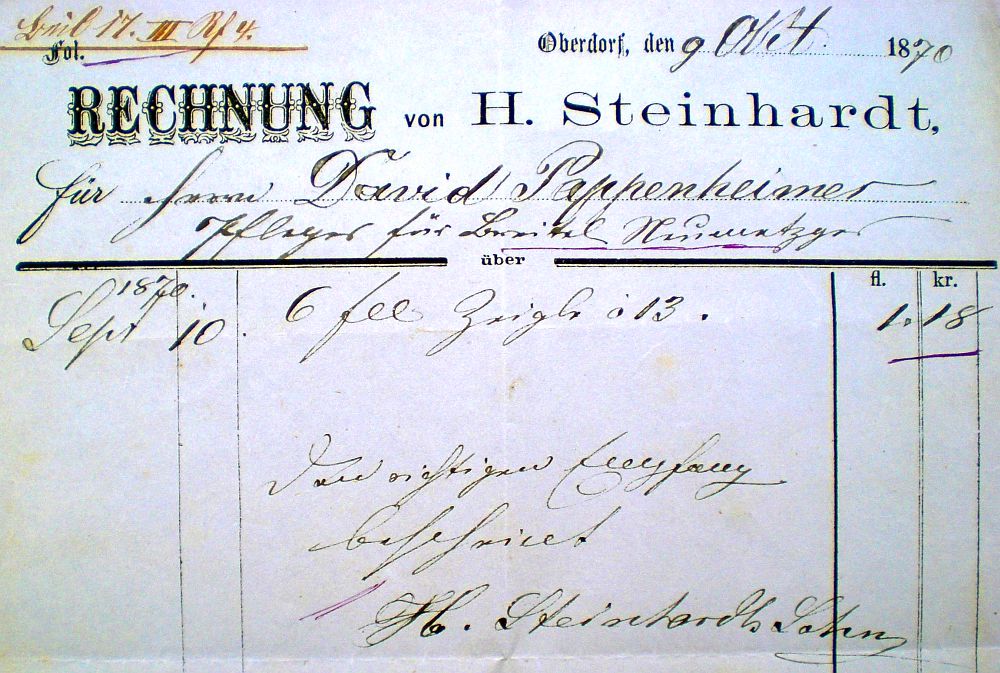 Beil 17. III Rf 4.
Fol.
Oberdorf, den 9 Okt. 1870
RECHNUNG von H. Steinhardt,
für Herrn David Pappenheimer
Pfleger für Breitel Neumetzger
über
fl. kr.
1870.
Sept 10. 6 Zeigle á 13. 1. 18
Den richtigen Empfang
bescheinet
H. Steinhardts Sohn